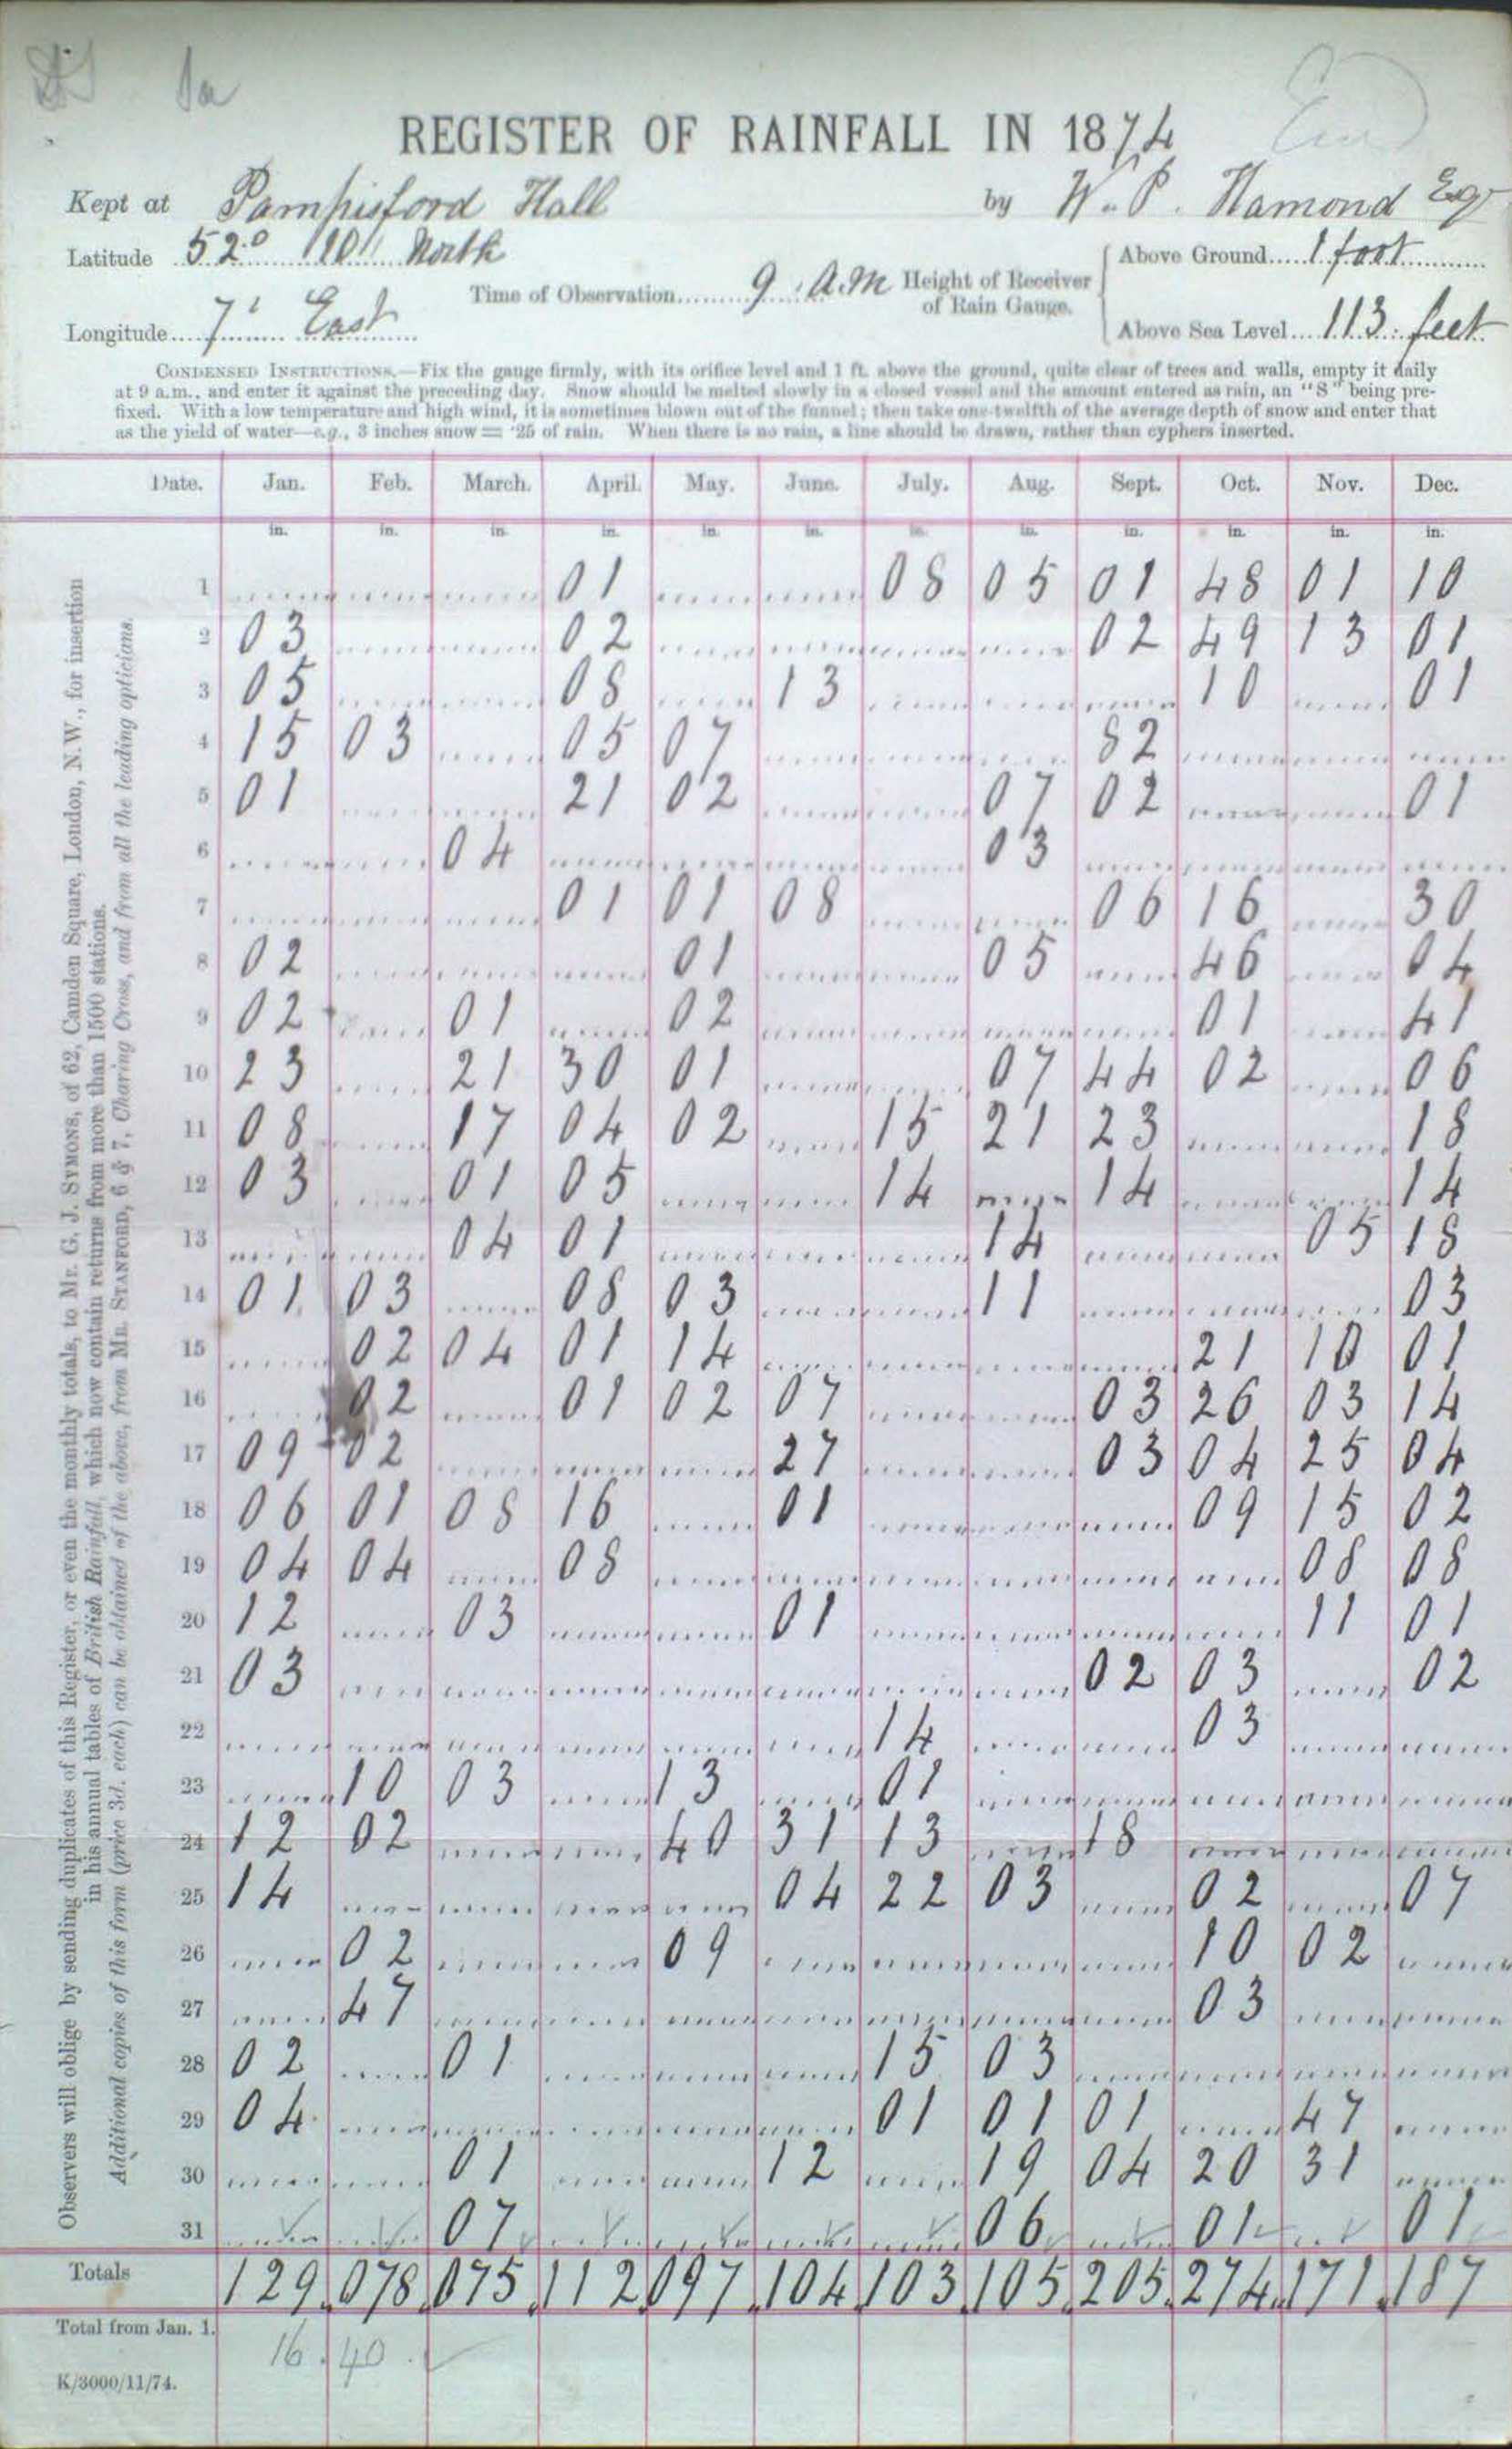 REGISTER OF RAINFALL IN 1874
Kept at Pampisford Hall by W. P. Hamond Esqr
Latitude 52° 10' North
Longitude 7' East
Time of Observation 9 A.M
Height of Receiver of Rain Gauge.
Above Ground 1 foot
Above Sea Level 113 feet
CONDENSED INSTRUCTIONS.—Fix the gauge firmly, with its orifice level and 1 ft. above the ground, quite clear of trees and walls, empty it daily
at 9 a.m., and enter it against the preceding day. Snow should be melted slowly in a closed vessel and the amount entered as rain, an "S" being pre-
fixed. With a low temperature and high wind, it is sometimes blown out of the funnel; then take one-twelfth of the average depth of snow and enter that
as the yield of water—e.g., 3 inches snow = ·25 of rain. When there is no rain, a line should be drawn, rather than cyphers inserted.
Date. Jan. Feb. March. April. May. June. July. Aug. Sept. Oct. Nov. Dec.
in. in. in. in. in. in. in. in. in. in. in. in.
1 01 08 05 01 48 01 10
2 03 02 02 49 13 01
3 05 08 13 10 01
4 15 03 05 07 82
5 01 21 02 07 02 01
6 04 03
7 01 01 08 06 16 30
8 02 01 05 46 04
9 02 01 02 01 41
10 23 21 30 01 07 44 02 06
11 08 17 04 02 15 21 23 18
12 03 01 05 14 14 14
13 04 01 14 05 18
14 01 03 08 03 11 03
15 02 04 01 14 21 10 01
16 02 01 02 07 03 26 03 14
17 09 02 27 03 04 25 04
18 06 01 08 16 01 09 15 02
19 04 04 08 08 08
20 12 03 01 11 01
21 03 02 03 02
22 14 03
23 10 03 13 01
24 12 02 40 31 13 18
25 14 04 22 03 02 07
26 02 09 10 02
27 47 03
28 02 01 15 03
29 04 01 01 01 47
30 01 12 19 04 20 31
31 07 06 01 01
Totals 129 078 075 112 097 104 103 105 205 274 171 187
Total from Jan. 1.
16.40
K/3000/11/74.
Observers will oblige by sending duplicates of this Register, or even the monthly totals, to Mr. G. J. SYMONS, of 62, Camden Square, London, N.W., for insertion
in his annual tables of British Rainfall, which now contain returns from more than 1500 stations.
Additional copies of this form (price 3d. each) can be obtained of the above, from MR. STANFORD, 6 & 7, Charing Cross, and from all the leading opticians.